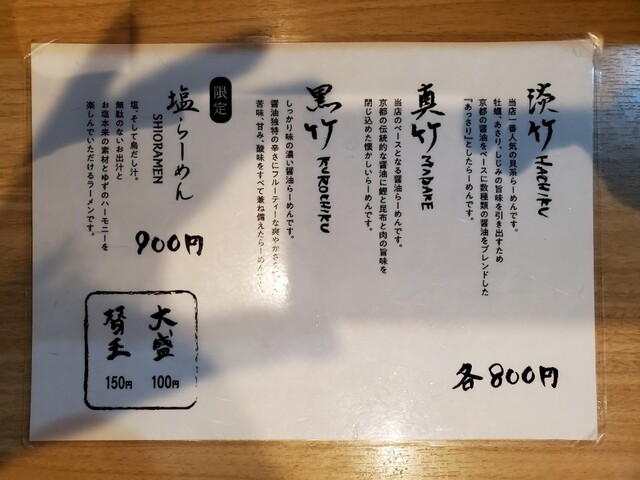 淡竹 HACHIKU
当店一番人気の貝系らーめんです。
牡蠣、あさり、しじみの旨味を引き出すため
京都の醤油をベースに数種類の醤油をブレンドした
『あっさり』としたらーめんです。
各800円
真竹 MADAKE
当店のベースとなる醤油らーめんです。
京都の伝統的な醤油に鰹と昆布と肉の旨味を
閉じ込めた懐かしいらーめんです。
黒竹 KUROCHIKU
しっかり味の濃い醤油らーめんです。
醤油独特の辛さにフルーティーな爽やかさ
苦味、甘み、酸味をすべて兼ね備えたらーめんです。
限定
塩らーめん
SHIORAMEN
塩、そして鳥だし汁。
無駄のないお出汁と
お塩本来の素材とゆずのハーモニーを
楽しんでいただけるラーメンです。
900円
大盛
100円
替玉
150円